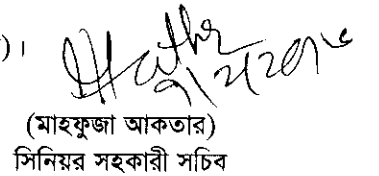 ) ।
(মাহফুজা আকতার)
সিনিয়র সহকারী সচিব